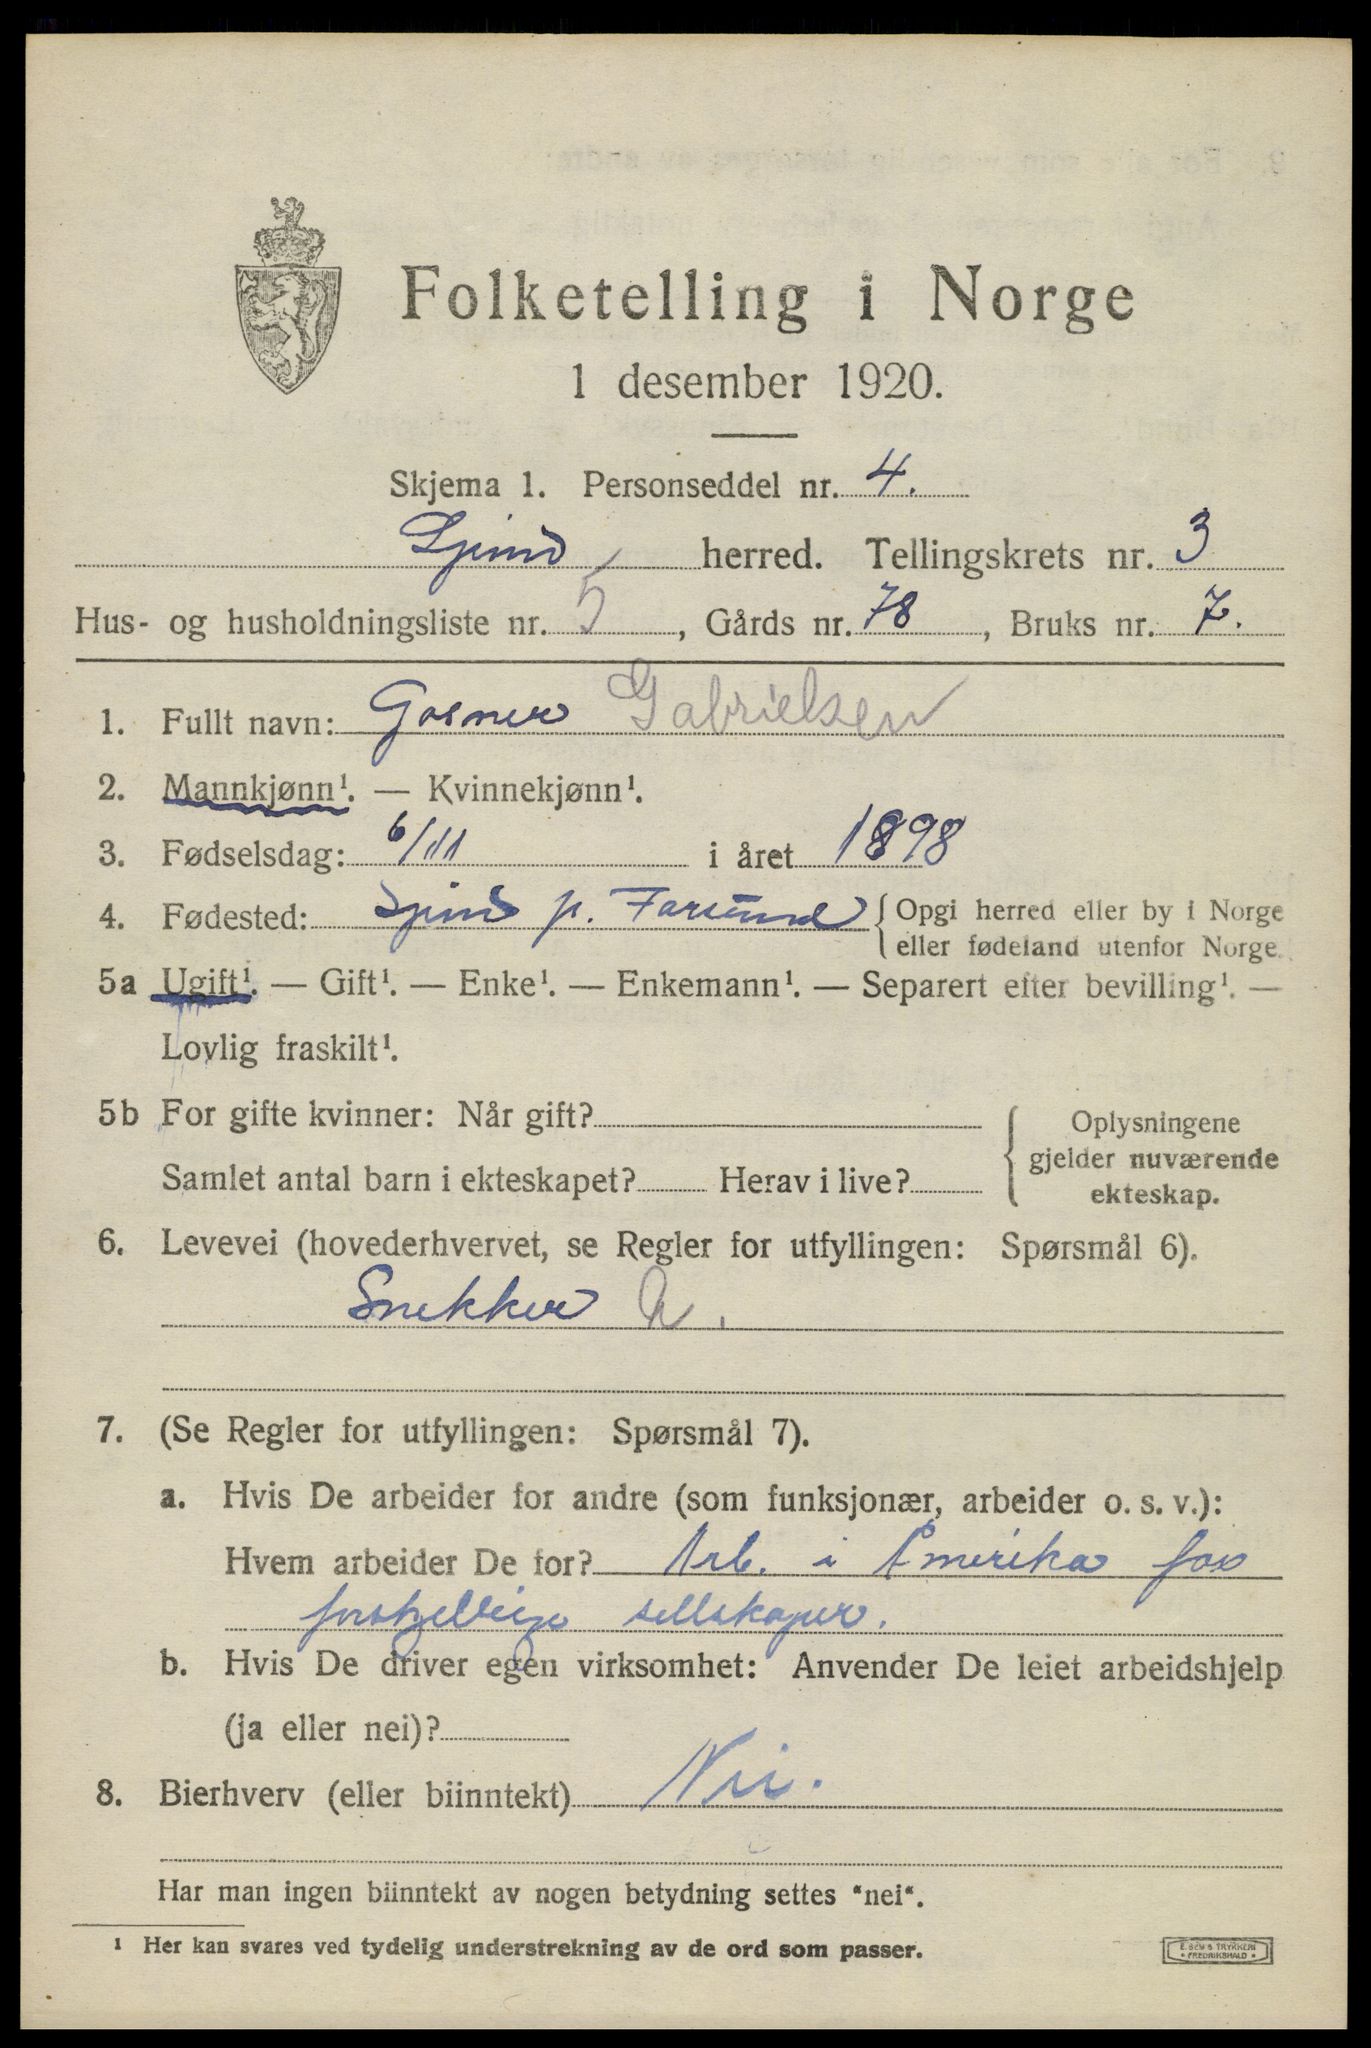 Folketelling i Norge
1 desember 1920.
Skjema 1. Personseddel nr. 4.
Spind herred. Tellingskrets nr. 3
Hus- og husholdningsliste nr. 5, Gårds nr. 78, Bruks nr. 7.
1. Fullt navn: Gosner Gabrielsen
2. Mannkjønn¹. — Kvinnekjønn¹.
3. Fødselsdag: 6/11 i året 1898
4. Fødested: Spind p. Farsund { Opgi herred eller by i Norge
eller fødeland utenfor Norge.
5a Ugift¹. — Gift¹. — Enke¹. — Enkemann¹. — Separert efter bevilling¹. —
Lovlig fraskilt¹.
5b For gifte kvinner: Når gift?
Samlet antal barn i ekteskapet? Herav i live?
Oplysningene
gjelder nuværende
ekteskap.
6. Levevei (hovederhvervet, se Regler for utfyllingen: Spørsmål 6).
Snekker a.
7. (Se Regler for utfyllingen: Spørsmål 7).
a. Hvis De arbeider for andre (som funksjonær, arbeider o. s. v.):
Hvem arbeider De for? Arb. i Amerika for
forskjellige sellskaper.
b. Hvis De driver egen virksomhet: Anvender De leiet arbeidshjelp
(ja eller nei)?
8. Bierhverv (eller biinntekt) Nei.
Har man ingen biinntekt av nogen betydning settes "nei".
¹ Her kan svares ved tydelig understrekning av de ord som passer.
E. SEM'S TRYKKERI
• FREDRIKSHALD •